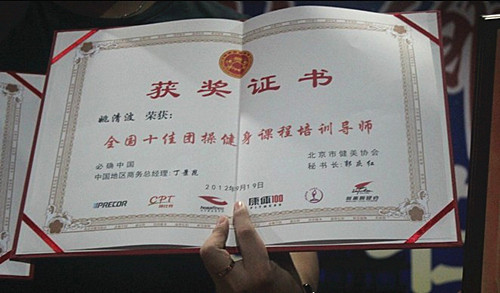 获奖证书
姚清波 荣获：
全国十佳团操健身课程培训导师
必确中国 北京市健美协会
中国地区商务总经理：丁景岚 秘书长：郭庆红
2012年8月19日
PRECOR CPT 康体100